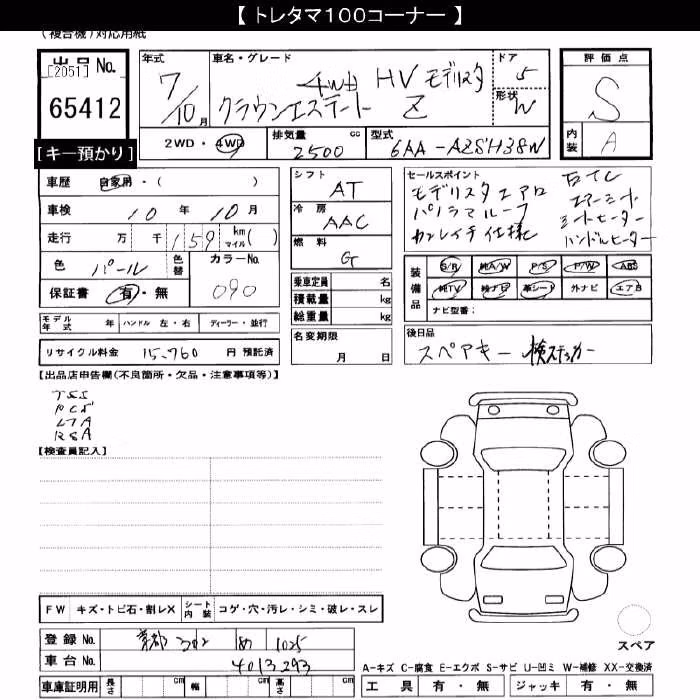 【 トレタマ100コーナー 】
(複合機)対応用紙
出品 No.
[2051]
65412
[キー預かり]
年式 車名・グレード ドア 評価点
7/10月 4wd HV モデリスタ 5
クラウンエステート Z 形状 W
S
2WD・4WD 排気量 cc 型式 内装 A
2500 6AA-AZSH38W
車歴 自家用・( )
車検 10年 10月
走行 万 千 159 km マイル ( )
色 パール 色替 カラーNo.
保証書 有・無 090
シフト AT
冷房 AAC
燃料 G
乗車定員 名
積載量 kg
総重量 kg
セールスポイント
モデリスタエアロ ETC
パノラマルーフ エアーシート
カンレイチ仕様 シートヒーター
ハンドルヒーター
装備品 S/R 純A/W P/S P/W ABS
純TV 純ナビ 革シート 外ナビ エアB
ナビ型番:
モデル年式 年 ハンドル 左・右 ディーラー・並行
名変期限 月 日
後日品
スペアキー 検ステッカー
リサイクル料金 15,760 円 預託済
【出品店申告欄(不良箇所・欠品・注意事項等)】
TSS
PCS
LTA
RSA
【検査員記入】
FW キズ・トビ石・割レX シート内装 コゲ・穴・汚レ・シミ・破レ・スレ
登録 No. 京都 302 1025
車台 No. 4013293
車庫証明用 長さ cm 幅 cm 高さ cm
スペア
A-キズ C-腐食 E-エクボ S-サビ U-凹ミ W-補修 XX-交換済
工具 有・無 ジャッキ 有・無